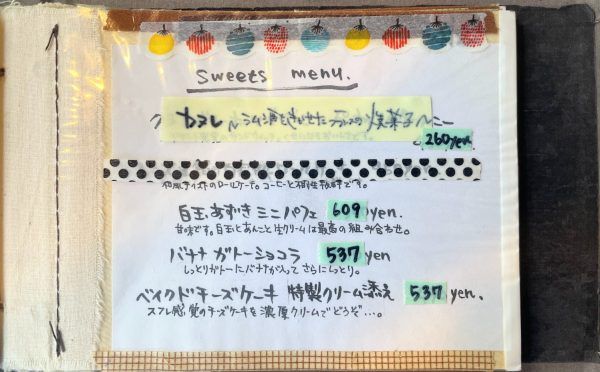 sweets menu.
カヌレ 〜ラム酒をきかせたフランスの焼菓子〜
260yen
和風テイストのロールケーキ。コーヒーと相性抜群です。
白玉あずきミニパフェ 609 yen.
甘味です。白玉とあんこと生クリームは最高の組み合わせ。
バナナガトーショコラ 537 yen
しっとりガトーにバナナが入ってさらにしっとり。
ベイクドチーズケーキ 特製クリーム添え 537 yen.
スフレ感覚のチーズケーキを濃厚クリームでどうぞ…。